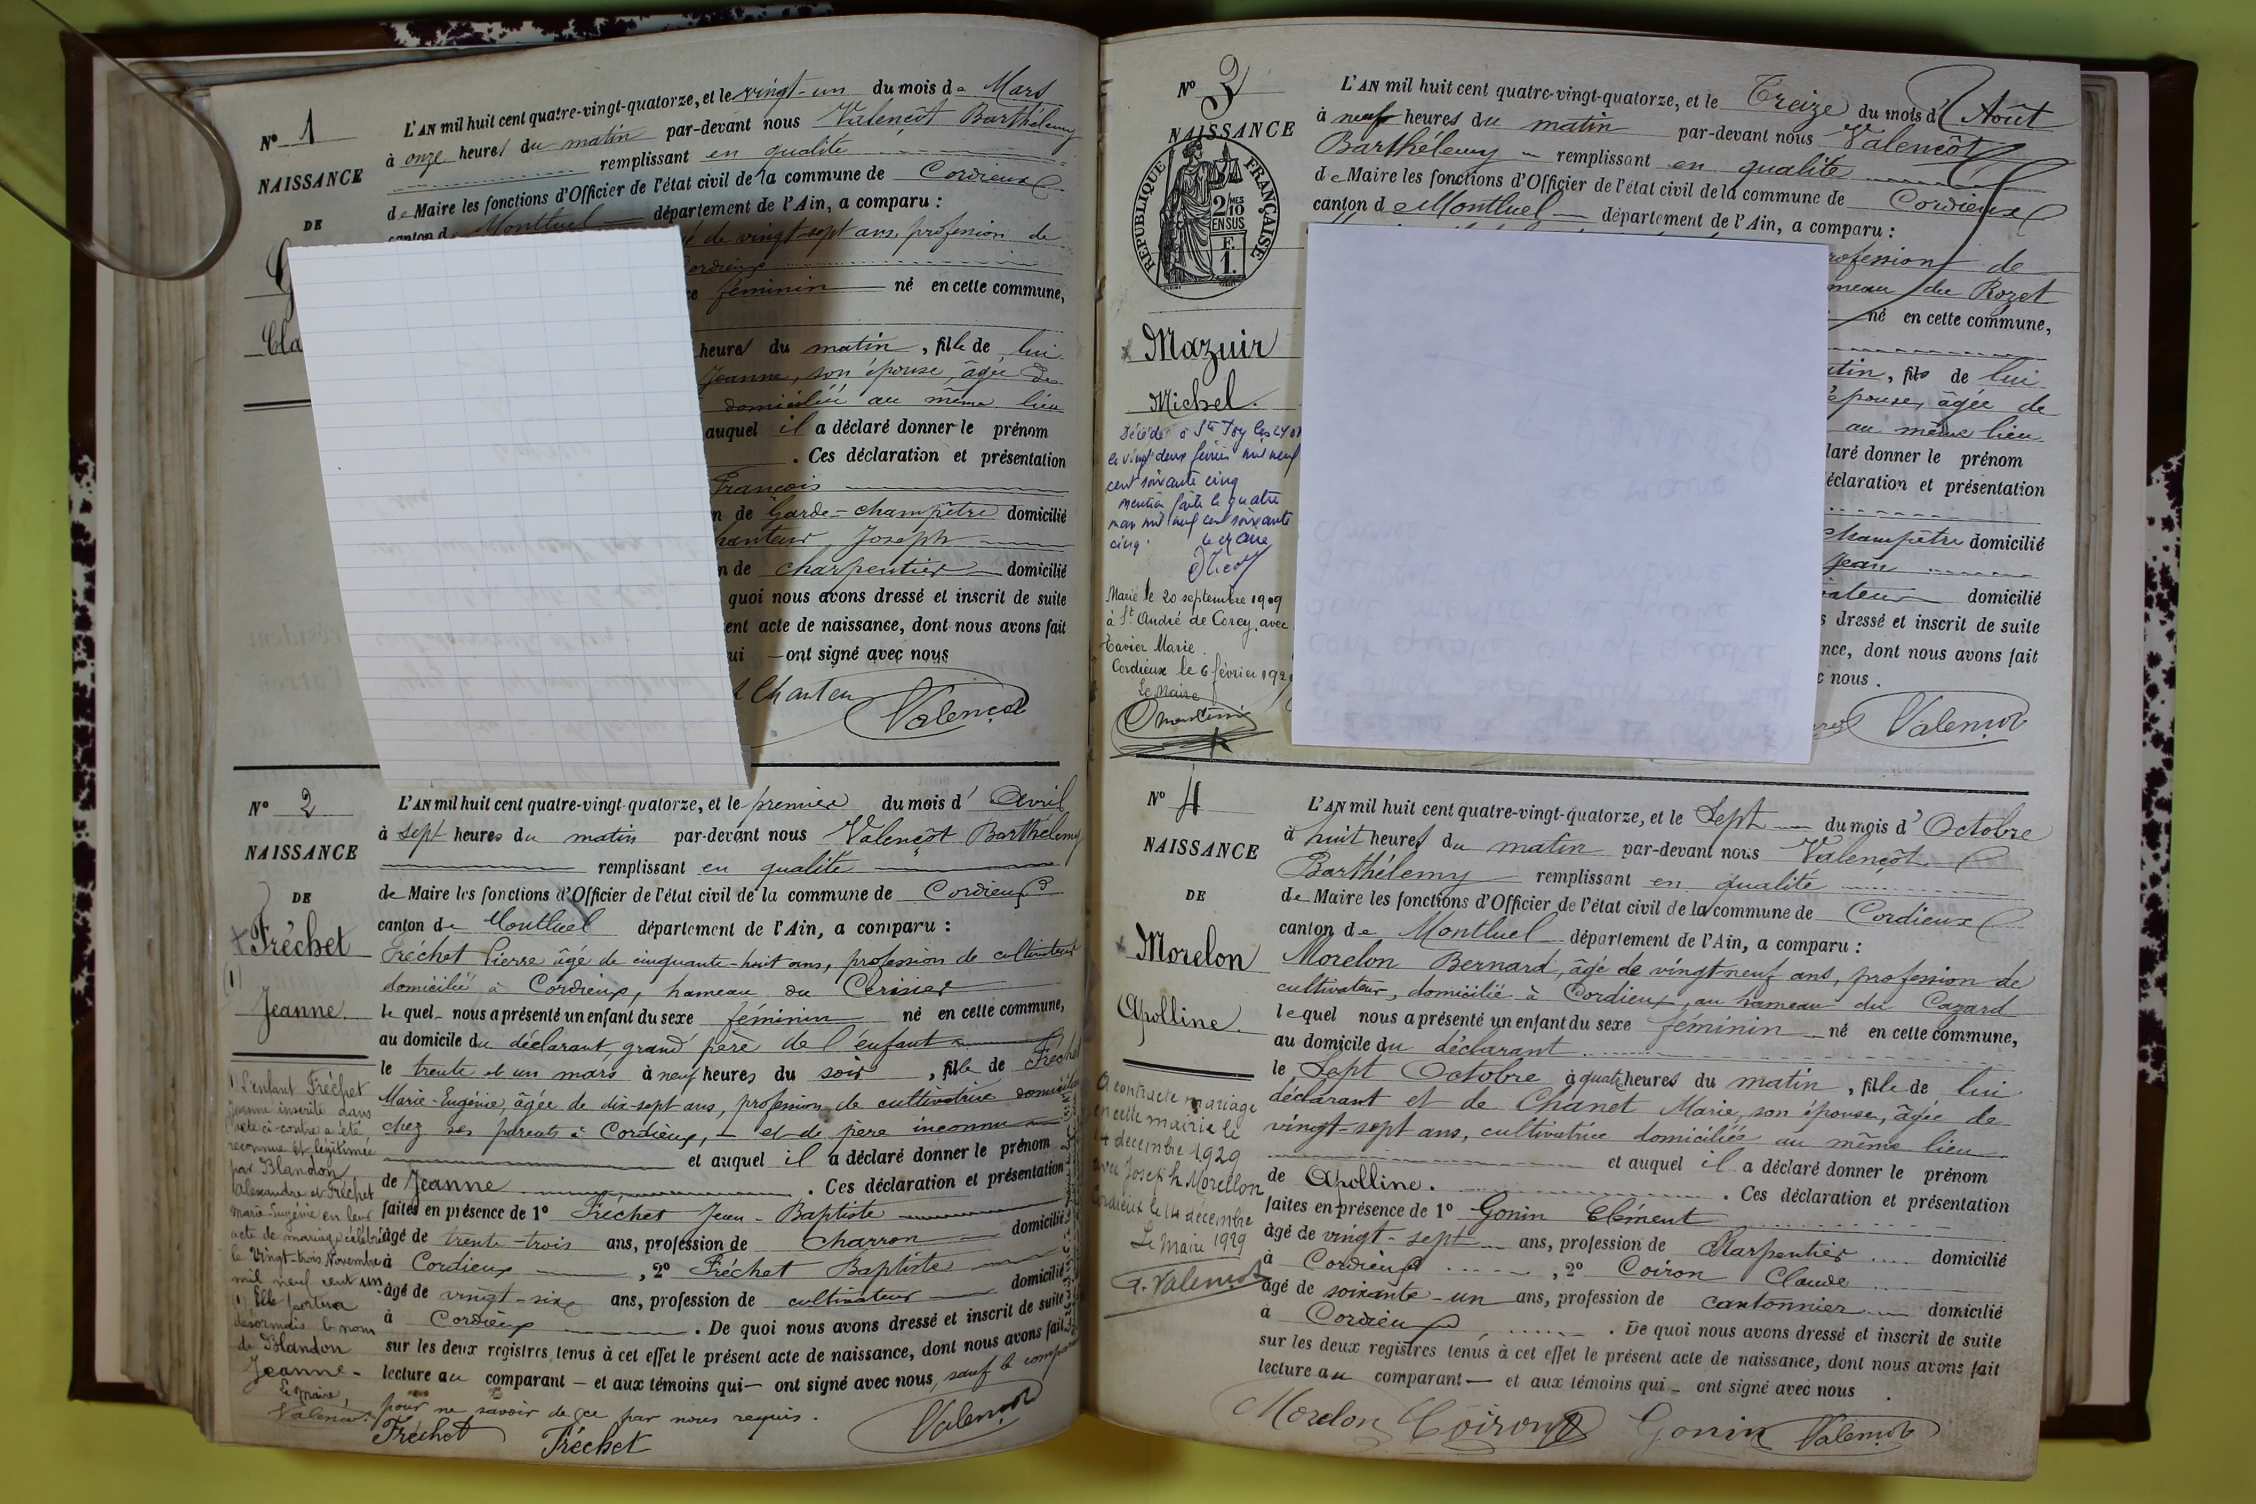 N° 1
NAISSANCE
DE
Cla
L'AN mil huit cent quatre-vingt-quatorze, et le vingt-un du mois de Mars
à onze heures du matin par-devant nous Valençôt Barthélemy
remplissant en qualité
de Maire les fonctions d'Officier de l'état civil de la commune de Cordieux
canton de Montluel département de l'Ain, a comparu :
de vingt-sept ans, profession de
Cordieux
féminin né en cette commune,
heures du matin, fille de lui
Jeanne, son épouse, âgée de
domiciliée au même lieu
auquel il a déclaré donner le prénom
. Ces déclaration et présentation
François
de Garde-champêtre domicilié
Joseph
de charpentier domicilié
quoi nous avons dressé et inscrit de suite
acte de naissance, dont nous avons fait
ui — ont signé avec nous
Valençot
N° 2
NAISSANCE
DE
Fréchet
(1)
Jeanne
L'AN mil huit cent quatre-vingt-quatorze, et le premier du mois d'Avril
à sept heures du matin par-devant nous Valençôt Barthélemy
remplissant en qualité
de Maire les fonctions d'Officier de l'état civil de la commune de Cordieux
canton de Montluel département de l'Ain, a comparu :
Fréchet Pierre âgé de cinquante-huit ans, profession de cultivateur
domicilié à Cordieux, hameau du Cerisier
le quel nous a présenté un enfant du sexe féminin né en cette commune,
au domicile du déclarant, grand père de l'enfant
le trente et un mars à neuf heures du soir, fille de Fréchet
Marie-Eugénie, âgée de dix-sept ans, profession de cultivatrice domiciliée
chez ses parents à Cordieux, — et de père inconnu
et auquel il a déclaré donner le prénom
de Jeanne . Ces déclaration et présentation
faites en présence de 1° Fréchet Jean-Baptiste
âgé de trente-trois ans, profession de charron domicilié
à Cordieux , 2° Fréchet Baptiste
âgé de vingt-six ans, profession de cultivateur domicilié
à Cordieux . De quoi nous avons dressé et inscrit de suite
sur les deux registres tenus à cet effet le présent acte de naissance, dont nous avons fait
lecture au comparant — et aux témoins qui — ont signé avec nous, sauf le comparant
pour ne savoir de ce par nous requis.
Fréchet Fréchet Valençot
(1) L'enfant Fréchet
Jeanne inscrite dans
l'acte ci-contre a été
reconnue et légitimée
par Blandon
Alexandre et Fréchet
Marie-Eugénie en leur
acte de mariage célébré
le vingt-trois Novembre
mil neuf cent un.
(1) Elle portera
désormais le nom
de Blandon
Jeanne.
Le Maire,
Valençot
N° 3
NAISSANCE
RÉPUBLIQUE FRANÇAISE
2/10 MES
EN SUS
F.
1.
Mazuir
Michel.
Décédé à Ste Foy lès Lyon
le vingt deux février mil neuf
cent soixante cinq
mention faite le quatre
mars mil neuf cent soixante
cinq. le Maire
Marié le 20 septembre 1919
à St André de Corcy, avec
Tavier Marie.
Cordieux le 6 février 192
Le Maire
L'AN mil huit cent quatre-vingt-quatorze, et le Treize du mois d'Août
à neuf heures du matin par-devant nous Valençôt
Barthélemy — remplissant en qualité
de Maire les fonctions d'Officier de l'état civil de la commune de Cordieux
canton de Montluel département de l'Ain, a comparu :
profession de
hameau du Rozet
né en cette commune,
matin, fils de lui
épouse, âgée de
au même lieu
déclaré donner le prénom
déclaration et présentation
champêtre domicilié
Jean
domicilié
dressé et inscrit de suite
dont nous avons fait
nous.
Valençot
N° 4
NAISSANCE
DE
Morelon
Apolline.
A contracté mariage
en cette mairie le
14 décembre 1929
avec Joseph Morellon
Cordieux le 14 décembre
1929
Le Maire
V. Valençot
L'AN mil huit cent quatre-vingt-quatorze, et le Sept du mois d'Octobre
à huit heures du matin par-devant nous Valençôt
Barthélemy remplissant en qualité
de Maire les fonctions d'Officier de l'état civil de la commune de Cordieux
canton de Montluel département de l'Ain, a comparu :
Morelon Bernard, âgé de vingt-neuf ans, profession de
cultivateur, domicilié à Cordieux, au hameau du Cazard
lequel nous a présenté un enfant du sexe féminin né en cette commune,
au domicile du déclarant
le Sept Octobre à quatre heures du matin, fille de lui
déclarant et de Chanet Marie, son épouse, âgée de
vingt-sept ans, cultivatrice domiciliée au même lieu
et auquel il a déclaré donner le prénom
de Apolline. . Ces déclaration et présentation
faites en présence de 1° Gonin Clément
âgé de vingt-sept ans, profession de Charpentier domicilié
à Cordieux , 2° Coiron Claude
âgé de soixante-un ans, profession de cantonnier domicilié
à Cordieux . De quoi nous avons dressé et inscrit de suite
sur les deux registres tenus à cet effet le présent acte de naissance, dont nous avons fait
lecture au comparant — et aux témoins qui — ont signé avec nous .
Morelon Coiron Gonin Valençot